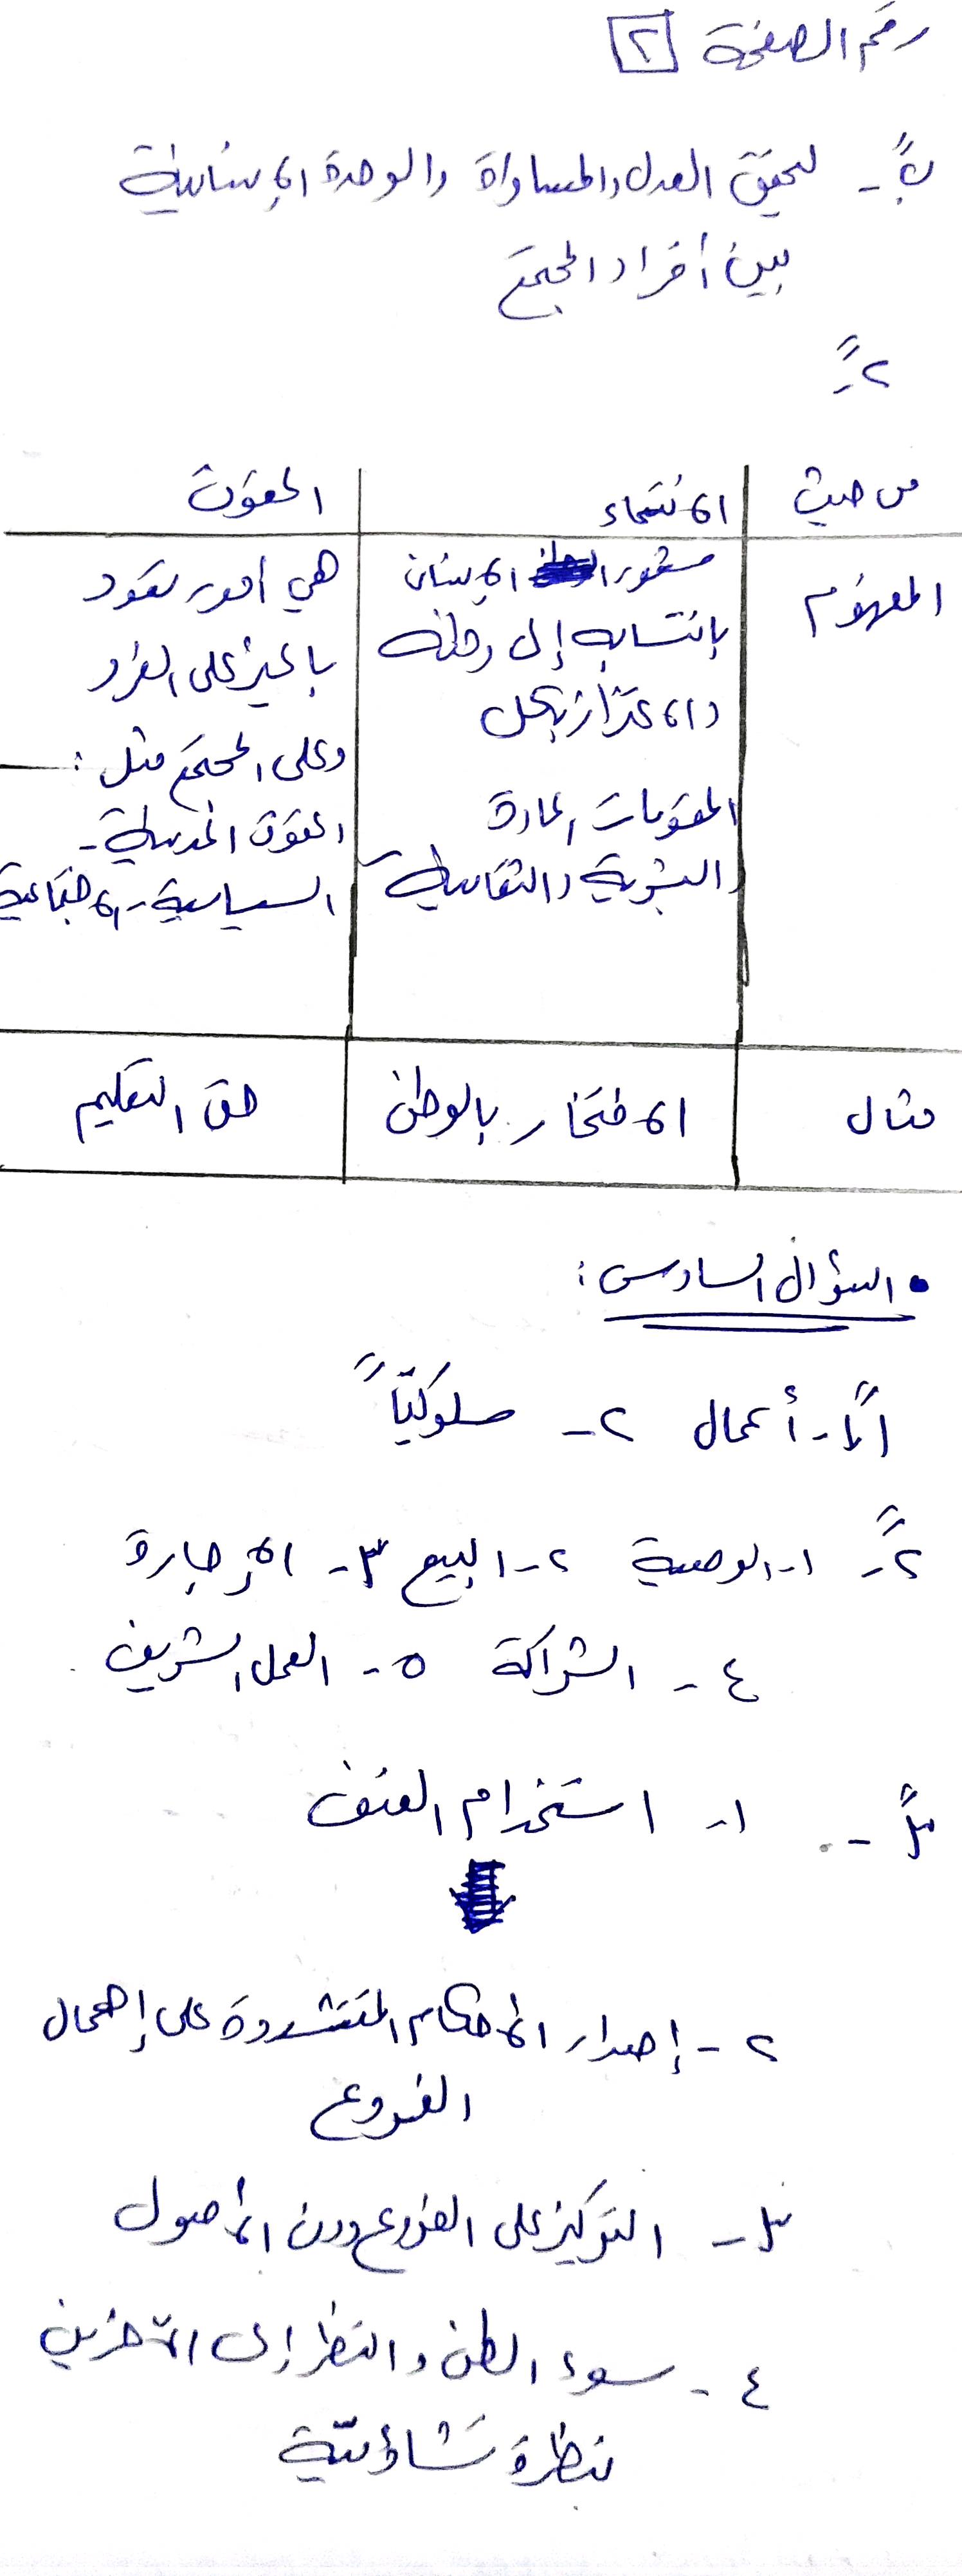 رقم الصفحة ٢
ب - لتحقيق العدل والمساواة والوحدة الإنسانية
بين أفراد المجتمع
٢ -
من حيث الانتماء الحقوق
المفهوم شعور الإنسان هي أمور تعود
بانتسابه إلى وطنه بالخير على الفرد
والاعتزاز بكل وعلى المجتمع مثل :
المقومات المادة الحقوق المدنية -
والبشرية والثقافية السياسية - الاجتماعية
مثال الافتخار بالوطن حق التعليم
• السؤال السادس :
أعمال ٢ - سلوكيّاً
٢ - ١ - الوصية ٢ - البيع ٣ - الإجارة
٤ - الشراكة ٥ - العمل الشريف
٣ - ١ - استخدام العنف
٢ - إصدار الأحكام المتشددة على إهمال
الفروع
٣ - التركيز على الفروع دون الأصول
٤ - سوء الظن والنظر إلى الآخرين
نظرة تشاؤميّة